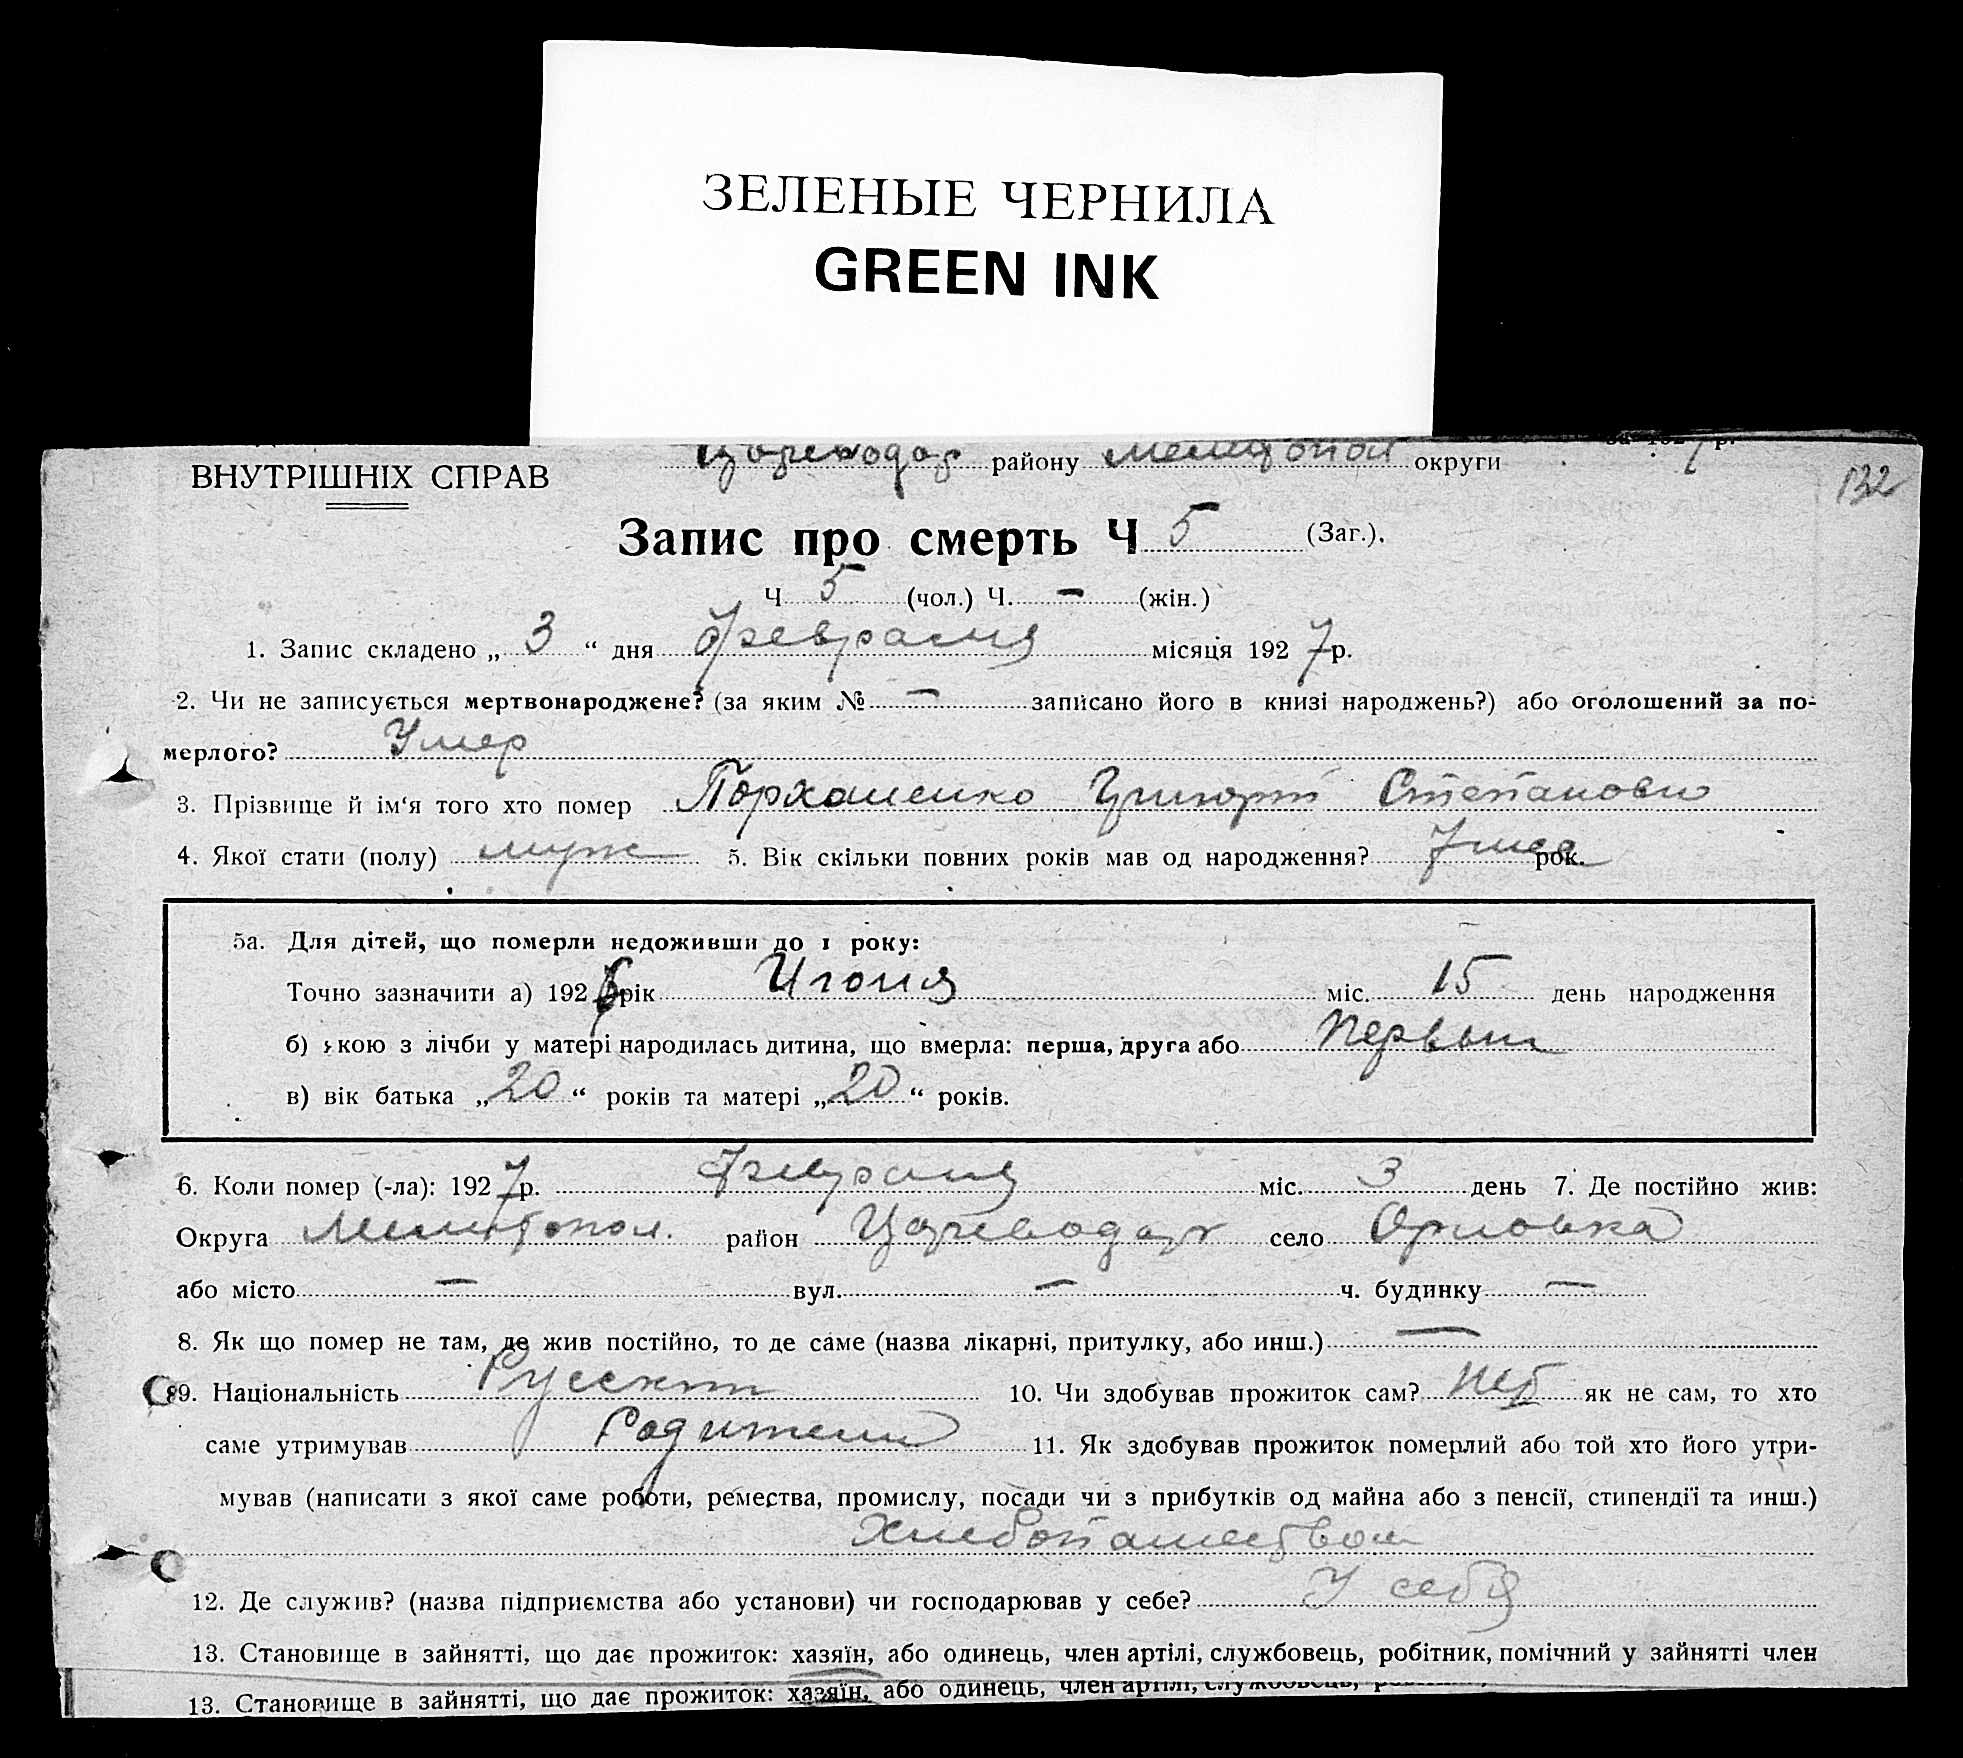 ЗЕЛЕНЫЕ ЧЕРНИЛА
GREEN INK
ВНУТРІШНІХ СПРАВ Цареводар району Мелитопол округи 7 р.
132
Запис про смерть Ч 5 (Заг.).
Ч 5 (чол.) Ч. — (жін.)
1. Запис складено „ 3 “ дня Февраля місяця 1927 р.
2. Чи не записується мертвонароджене? (за яким № — записано його в книзі народжень?) або оголошений за по-
мерлого? Умер
3. Прізвище й ім‘я того хто помер Григорий Степанович
4. Якої стати (полу) муж 5. Вік скільки повних років мав од народження? 7 мес рок.
5а. Для дітей, що померли недоживши до 1 року:
Точно зазначити а) 1926 рік Июля міс. 15 день народження
б) якою з лічби у матері народилась дитина, що вмерла: перша, друга або Первый
в) вік батька „ 20 “ років та матері „ 20 “ років.
6. Коли помер (-ла): 1927 р. Февраля міс. 3 день 7. Де постійно жив:
Округа Мелитопол. район Цареводар село Орловка
або місто — вул. — ч. будинку —
8. Як що помер не там, де жив постійно, то де саме (назва лікарні, притулку, або инш.) —
9. Національність Русский 10. Чи здобував прожиток сам? Нет як не сам, то хто
саме утримував Родители 11. Як здобував прожиток померлий або той хто його утри-
мував (написати з якої саме роботи, ремества, промислу, посади чи з прибутків од майна або з пенсії, стипендії та инш.)
Хлебопашеством
12. Де служив? (назва підприємства або установи) чи господарював у себе? У себя
13. Становище в зайнятті, що дає прожиток: хазяїн, або одинець, член артілі, службовець, робітник, помічний у зайнятті член
13. Становище в зайнятті, що дає прожиток: хазяїн, або одинець, член артілі, службовець,